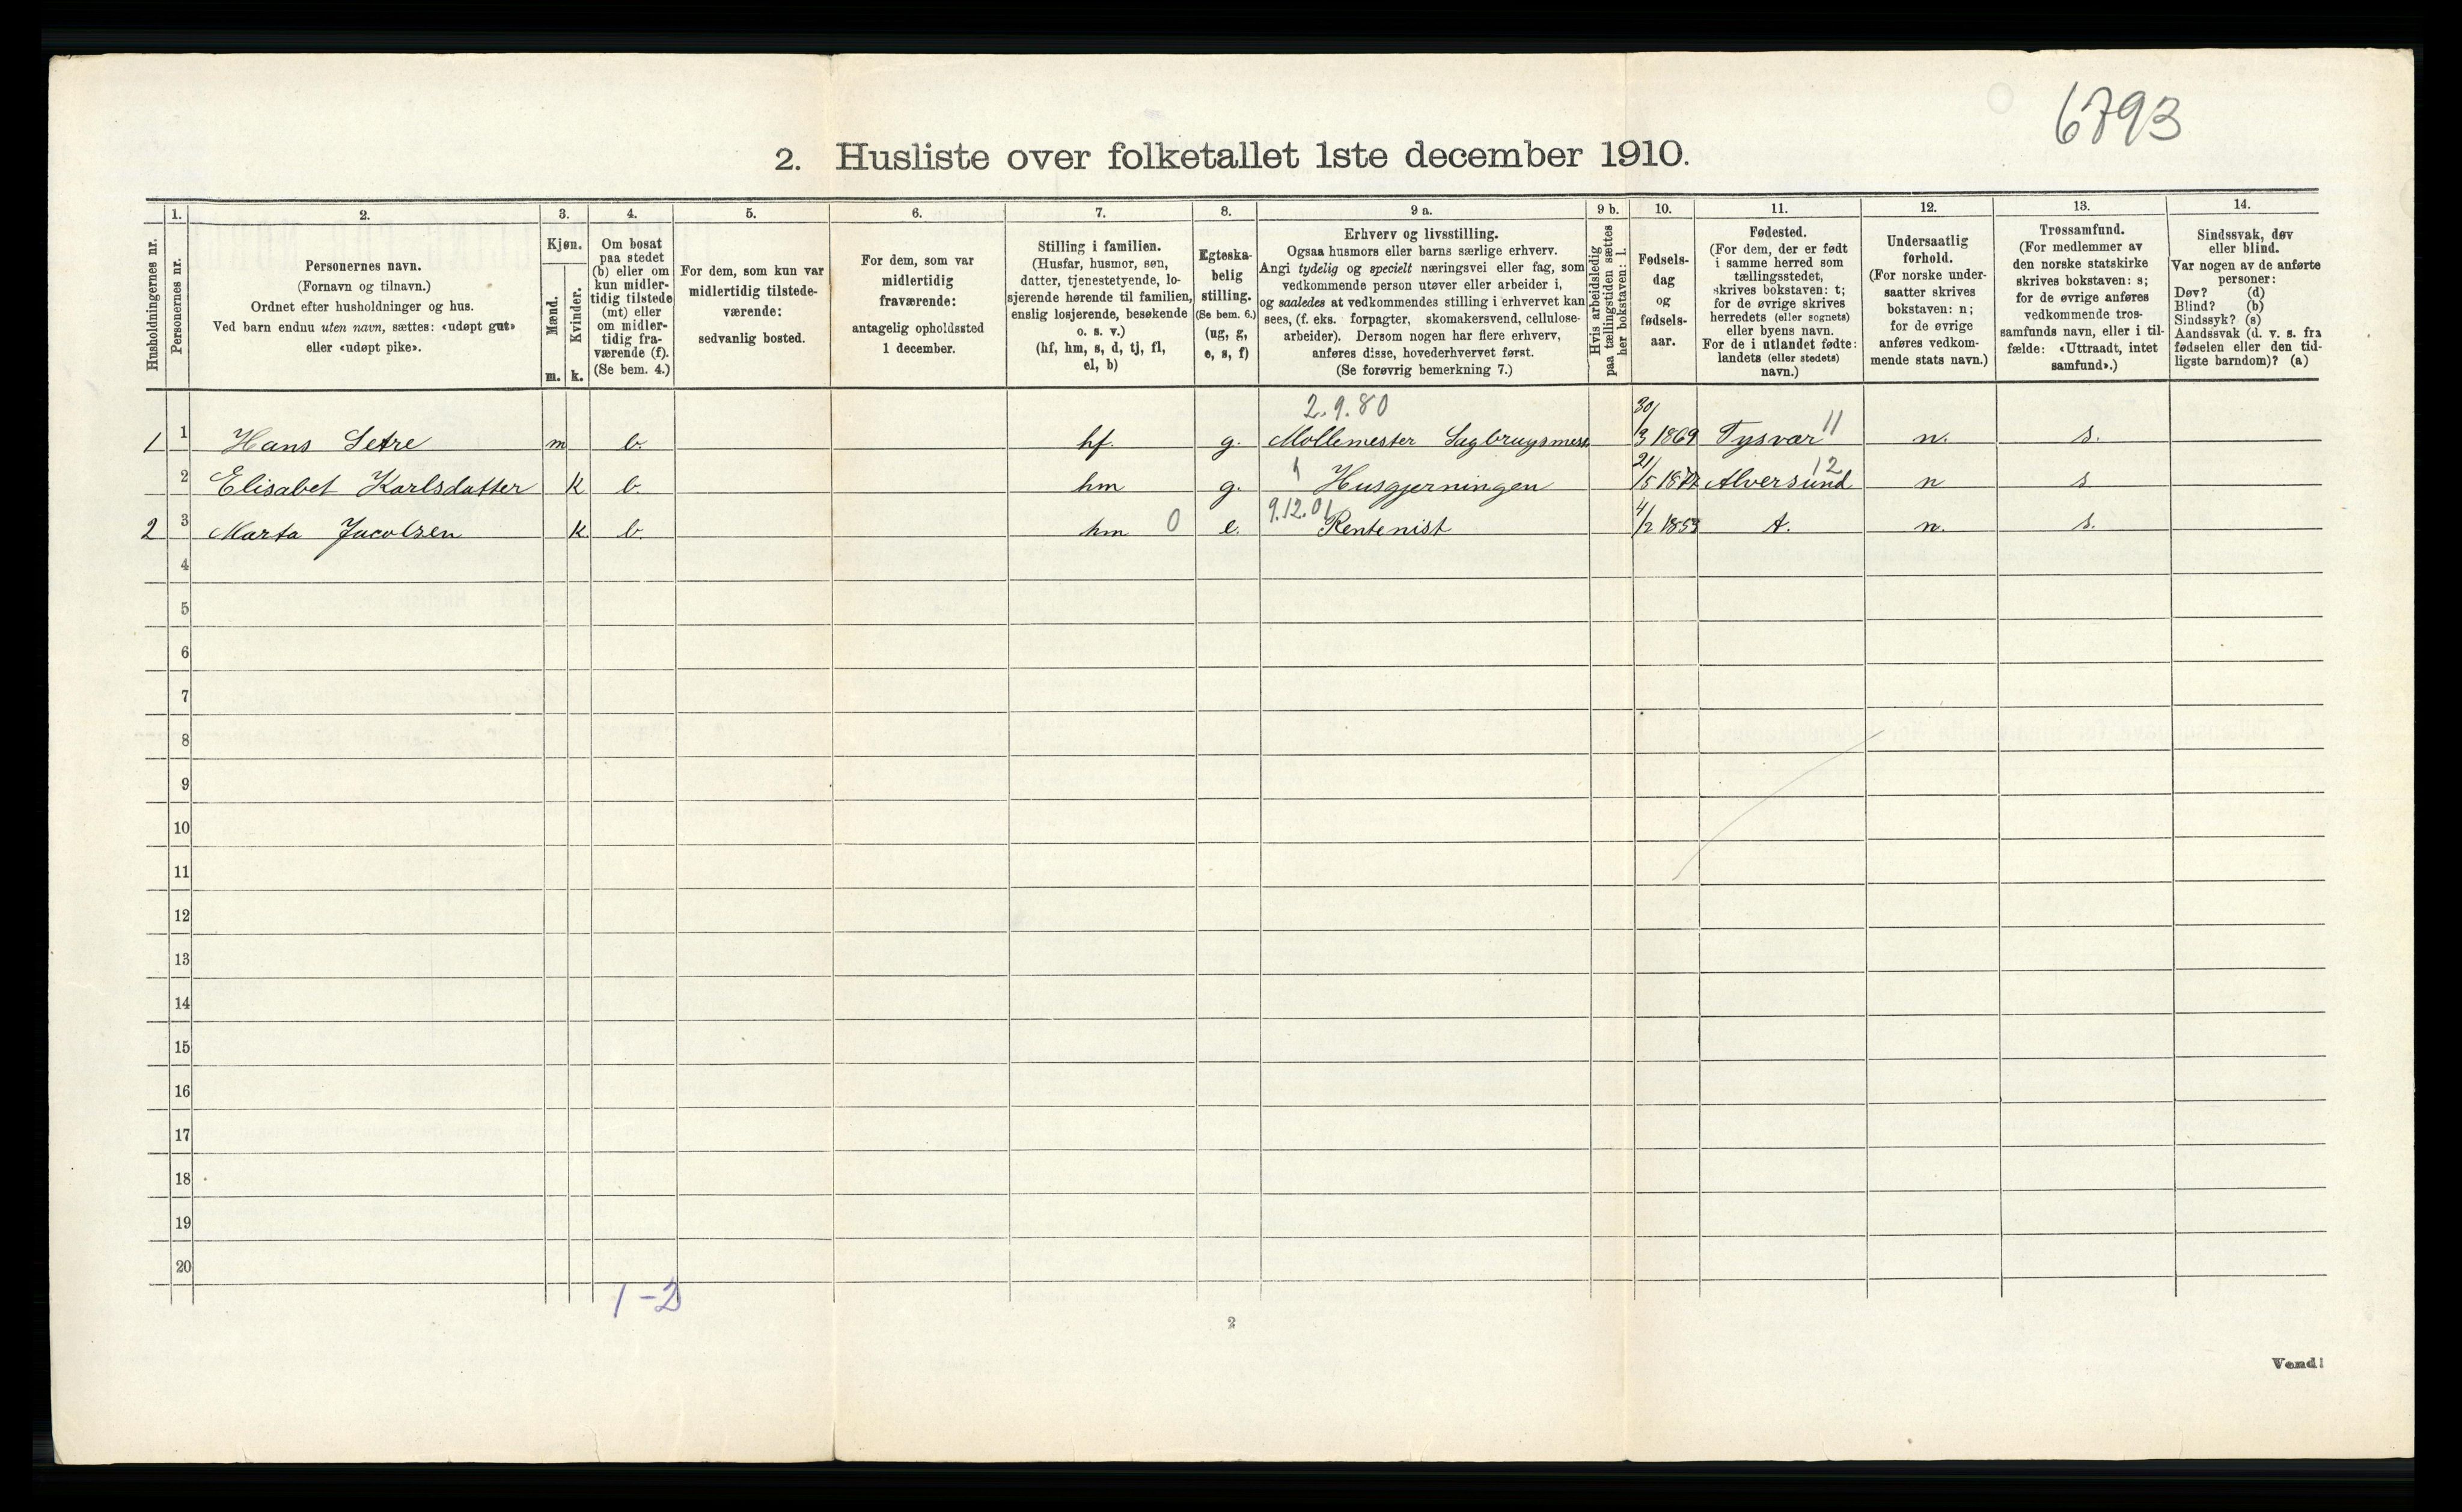 6793
2. Husliste over folketallet 1ste december 1910.
Husholdningernes nr.
1.
Personernes nr.
2.
Personernes navn.
(Fornavn og tilnavn.)
Ordnet efter husholdninger og hus.
Ved barn endnu uten navn, sættes: «udøpt gut»
eller «udøpt pike».
3.
Kjøn.
Mænd.
Kvinder.
m. k.
4.
Om bosat
paa stedet
(b) eller om
kun midler-
tidig tilstede
(mt) eller
om midler-
tidig fra-
værende (f).
(Se bem. 4.)
5.
For dem, som kun var
midlertidig tilstede-
værende:
sedvanlig bosted.
6.
For dem, som var
midlertidig
fraværende:
antagelig opholdssted
1 december.
7.
Stilling i familien.
(Husfar, husmor, søn,
datter, tjenestetyende, lo-
sjerende hørende til familien,
enslig losjerende, besøkende
o. s. v.)
(hf, hm, s, d, tj, fl,
el, b)
8.
Egteska-
belig
stilling.
(Se bem. 6.)
(ug, g,
e, s, f)
9 a.
Erhverv og livsstilling.
Ogsaa husmors eller barns særlige erhverv.
Angi tydelig og specielt næringsvei eller fag, som
vedkommende person utøver eller arbeider i,
og saaledes at vedkommendes stilling i erhvervet kan
sees, (f. eks. forpagter, skomakersvend, cellulose-
arbeider). Dersom nogen har flere erhverv,
anføres disse, hovederhvervet først.
(Se forøvrig bemerkning 7.)
9 b.
Hvis arbeidsledig
paa tællingstiden sættes
her bokstaven: l.
10.
Fødsels-
dag
og
fødsels-
aar.
11.
Fødested.
(For dem, der er født
i samme herred som
tællingsstedet,
skrives bokstaven: t;
for de øvrige skrives
herredets (eller sognets)
eller byens navn.
For de i utlandet fødte:
landets (eller stedets)
navn.)
12.
Undersaatlig
forhold.
(For norske under-
saatter skrives
bokstaven: n;
for de øvrige
anføres vedkom-
mende stats navn.)
13.
Trossamfund.
(For medlemmer av
den norske statskirke
skrives bokstaven: s;
for de øvrige anføres
vedkommende tros-
samfunds navn, eller i til-
fælde: «Uttraadt, intet
samfund».)
14.
Sindssvak, døv
eller blind.
Var nogen av de anførte
personer:
Døv? (d)
Blind? (b)
Sindssyk? (s)
Aandssvak (d. v. s. fra
fødselen eller den tid-
ligste barndom)? (a)
2.9.80
1 1 Hans Setre m b. hf. g. Møllemester Sagbrugsmest 30/3 1869 Tysvær 11 n. s.
2 Elisabet Karlsdatter k b. hm g. Husgjerningen 21/5 Alversund 12 n s
9.12.01
2 3 Marta Jacobsen k. b. hm 0 e. Rentenist 4/2 1853 t. n. s.
4
5
6
7
8
9
10
11
12
13
14
15
16
17
18
19
20
1-2
2
Vend!